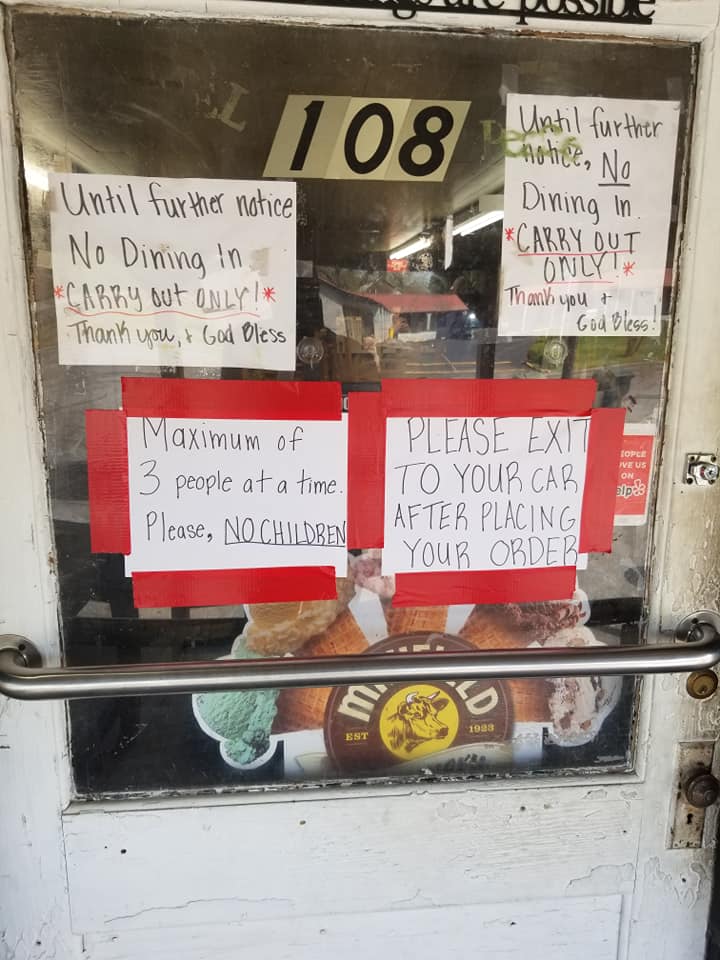 are possible
108
Until further notice
No Dining In
*CARRY OUT ONLY!*
Thank you, + God Bless
Until further
notice, No
Dining In
*CARRY OUT
ONLY!*
Thank you +
God Bless!
Maximum of
3 people at a time.
Please, NO CHILDREN
PLEASE EXIT
TO YOUR CAR
AFTER PLACING
YOUR ORDER
EOPLE
VE US
ON
elp
EST 1923